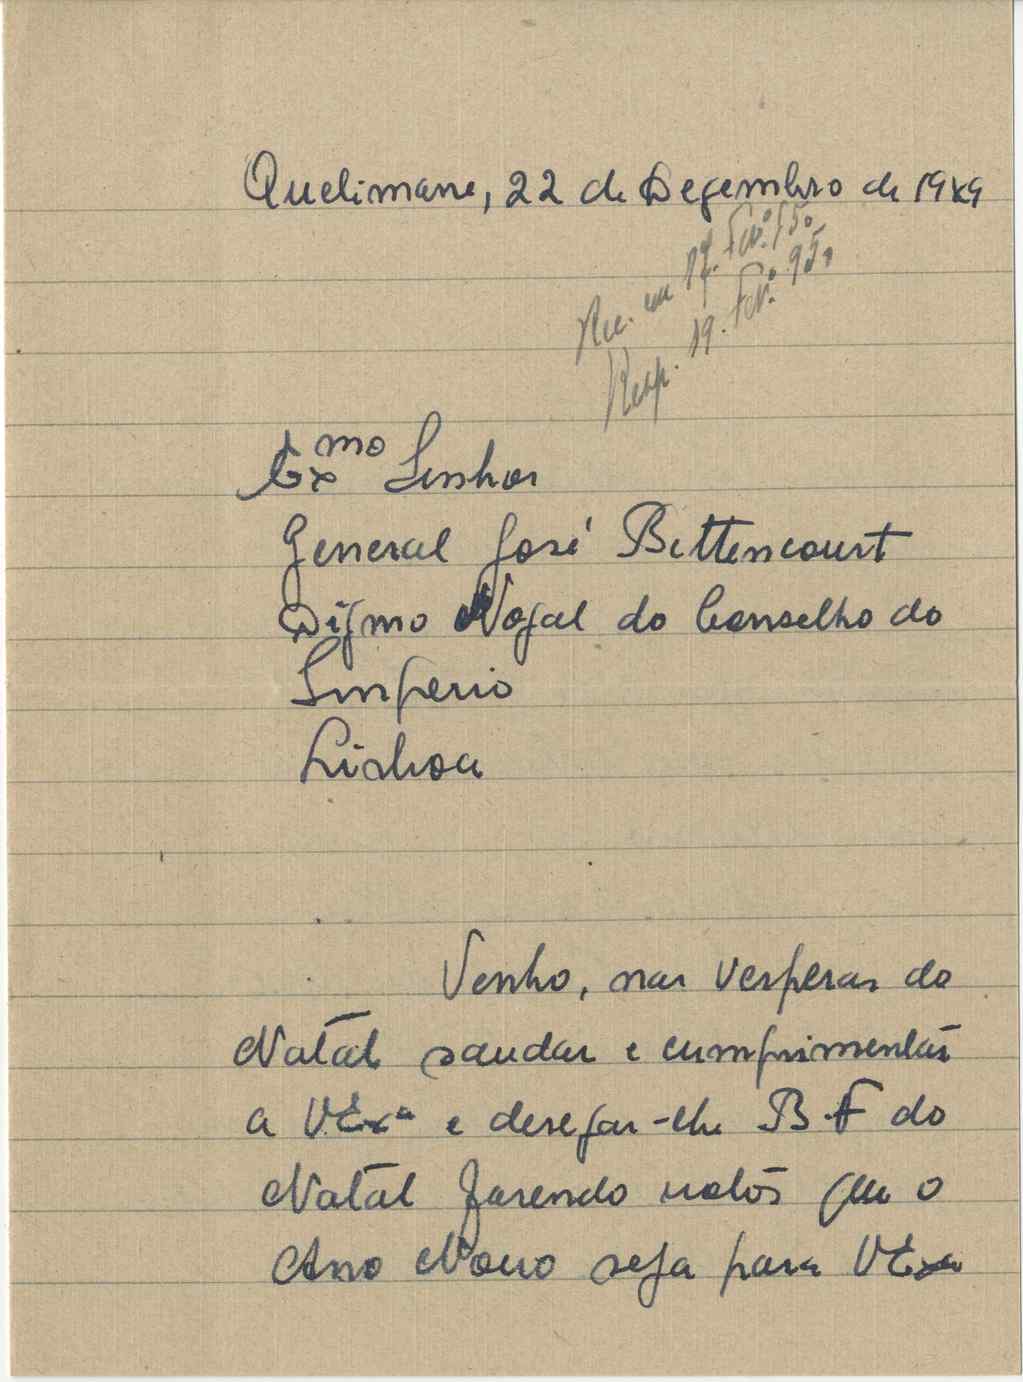 Quelimane, 22 de Dezembro de 1949
Rec. em 17. Fev.º 950
Resp. 19. Fev.º 950
Exmo Senhor
General José Bettencourt
Digmo Vogal do Conselho do
Imperio
Lisboa
Venho, nas vesperas do
Natal saudar e cumprimentar
a VExª e desejar-lhe B F do
Natal fazendo votos que o
Ano Novo seja para VExa